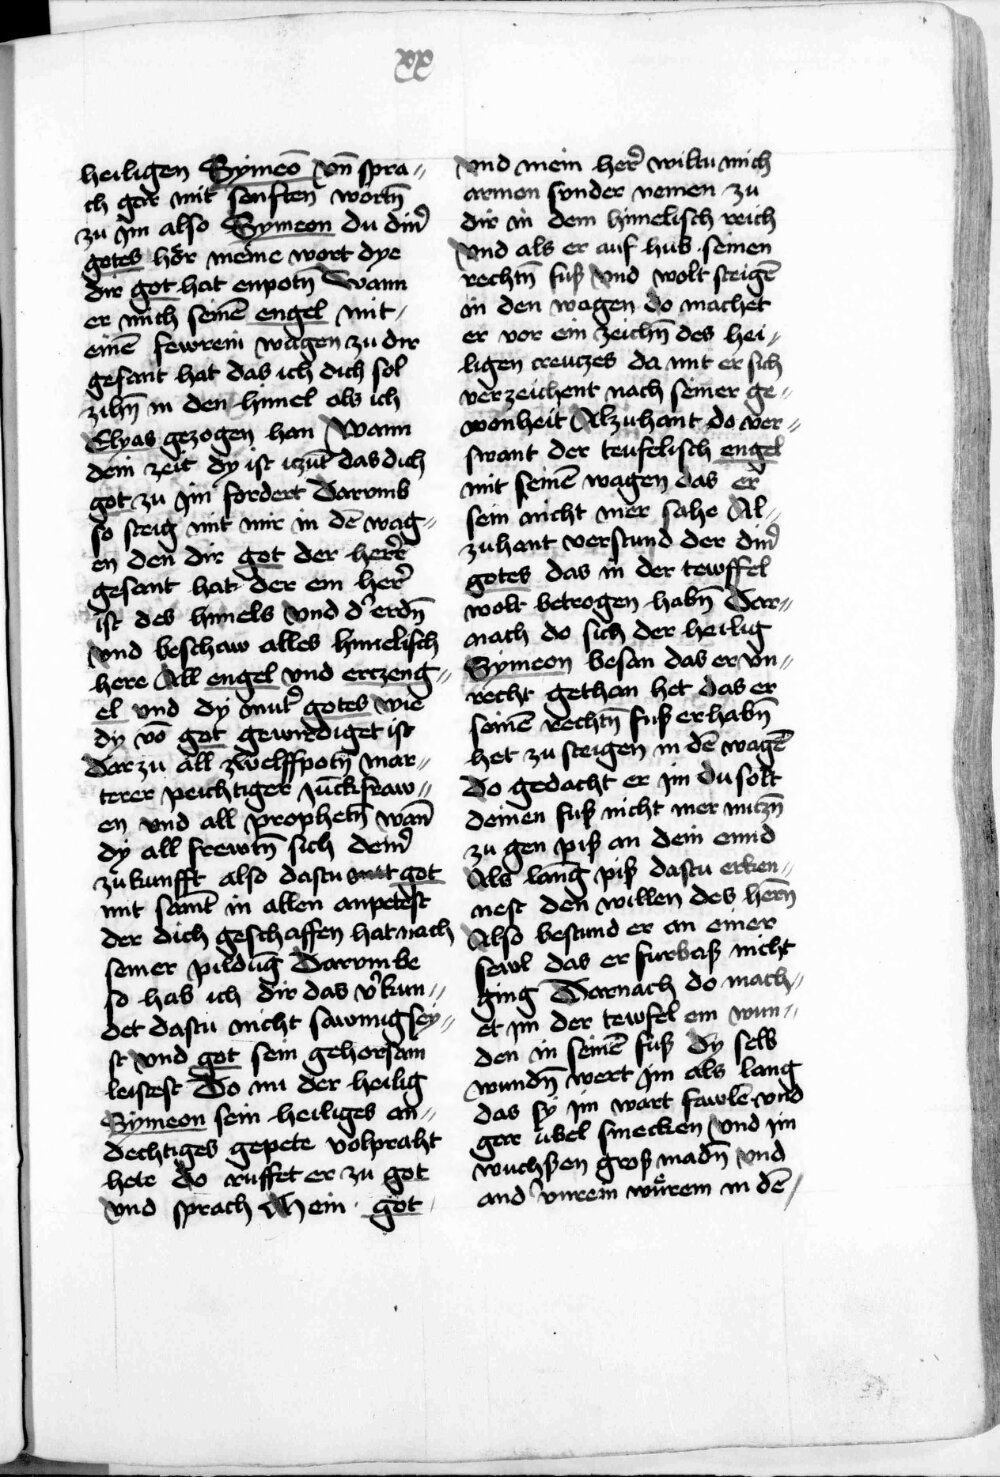 xx
heiligen Symeō vn̄ spra〃
ch gar mit senften wortn̄
zu ym also Symeon du din̄
gotes hör meine wort dye
dir got hat enpotn̄ Wann
er mich seinē engel mit〃
einē fewrein wagen zu dir
gesant hat das ich dich sol
zihn̄ in den himel als ich
Elyas gezogen han Wann
dein zeit dy ist iczūt das dich
got zu ym fordert Darvmb
so steig mit mir in dē wag〃
en den dir got der herr̄
gesant hat der ein her̄
ist des himels vnd d' erdn̄
vnd beschaw alles himelisch
here All engel vnd erczeng〃
el vnd dy mut' gotes wie
dy vō got gewirdiget ist
Darzu all zwelffpotn̄ mar〃
terer peichtiger Jūckfraw〃
en vnd all prophetn̄ wan̄
dy all frewtn̄ sich dein'
zukunfft also dastu got
mit samt in allen anpetest
der dich geschaffen hat nach
seiner pildūg Darvmbe
so hab ich dir das v'kun〃
det dastu nicht sawmig sey〃
st vnd got sein gehorsam
leistest Do nu der heilig
Symeon sein heiliges an〃
dechtiges gepete volpraht
hete do ruffet er zu got
vnd sprach Mein got
vnd mein her̄ wiltu mich
armen sunder nemen zu
dir in dem himelisch reich
Vnd als er auf hub seinen
rechtn̄ fuß vnd wolt steigē
in den wagen do machet
er vor ein zeichn̄ des hei〃
ligen creuczes da mit er sich
verzeichent nach seiner ge〃
wonheit Alzuhant do ver〃
swant der teufelisch engel
mit seinē wagen das er
sein nicht mer sahe Al〃
zuhant verstund der din̄
gotes das in der tewffel
wolt betrogen habn̄ Dar〃
nach do sich der heilig
Symeon besan das er vn〃
recht gethan het das er
seinē rechtn̄ fuß erhabn̄
het zu steigen in dē wagē
Do gedacht er im du solt
deinen fuß nicht mer nuczn̄
zu gen piß an dein ennd
Als lang piß dastu erken〃
nest den willen des hern̄
Also bestund er an einer
sewl das er furbaß nicht
ging Darnach do mach〃
et im der tewfel ein wun〃
den in seinē fuß dy selb
wundn̄ wert ym als lang
das sy im wart fawlē vnd
gar übel smecken vnd im
wuchßen groß madn̄ vnd
and' vnrein würem in dē